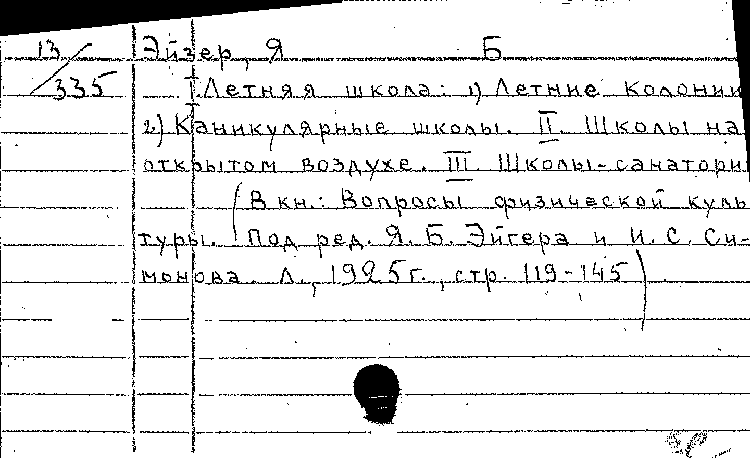 13/335 Эйзер, Я Б
I. Летняя школа: 1) Летние колонии
2) Каникулярные школы. II. Школы на
открытом воздухе. III. Школы-санатори
(В кн.: Вопросы физической куль
туры. Под ред. Я. Б. Эйгера и И. С. Си-
монова. Л., 1925г., стр. 119-145)